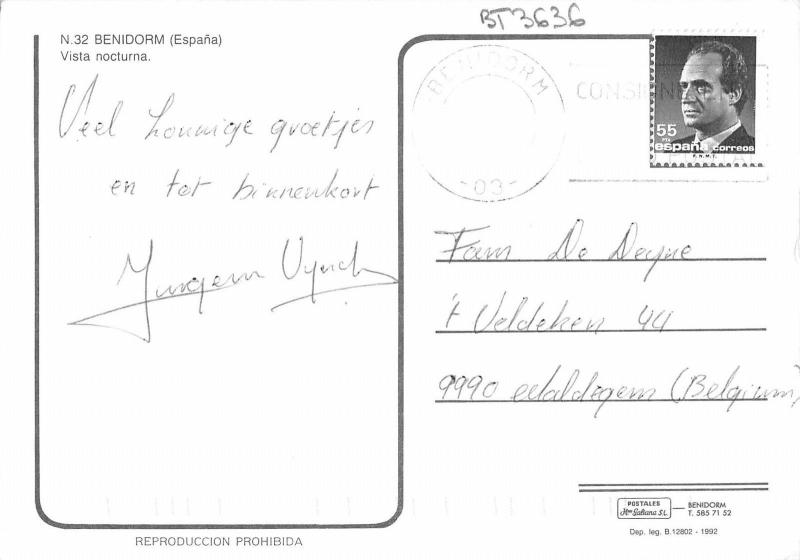 BT3636
N.32 BENIDORM (España)
Vista nocturna.
Veel honnige groetjes
en tot binnenkort
Jurgen
BENIDORM
-03-
CONSIGNE
55
PTA
españa correos
F.N.M.T.
Fam De Deyne
't Veldeken 44
9990 Maldegem (Belgium)
POSTALES
Hnos Galiana S.L.
BENIDORM
T. 585 71 52
Dep. leg. B.12802 - 1992
REPRODUCCION PROHIBIDA